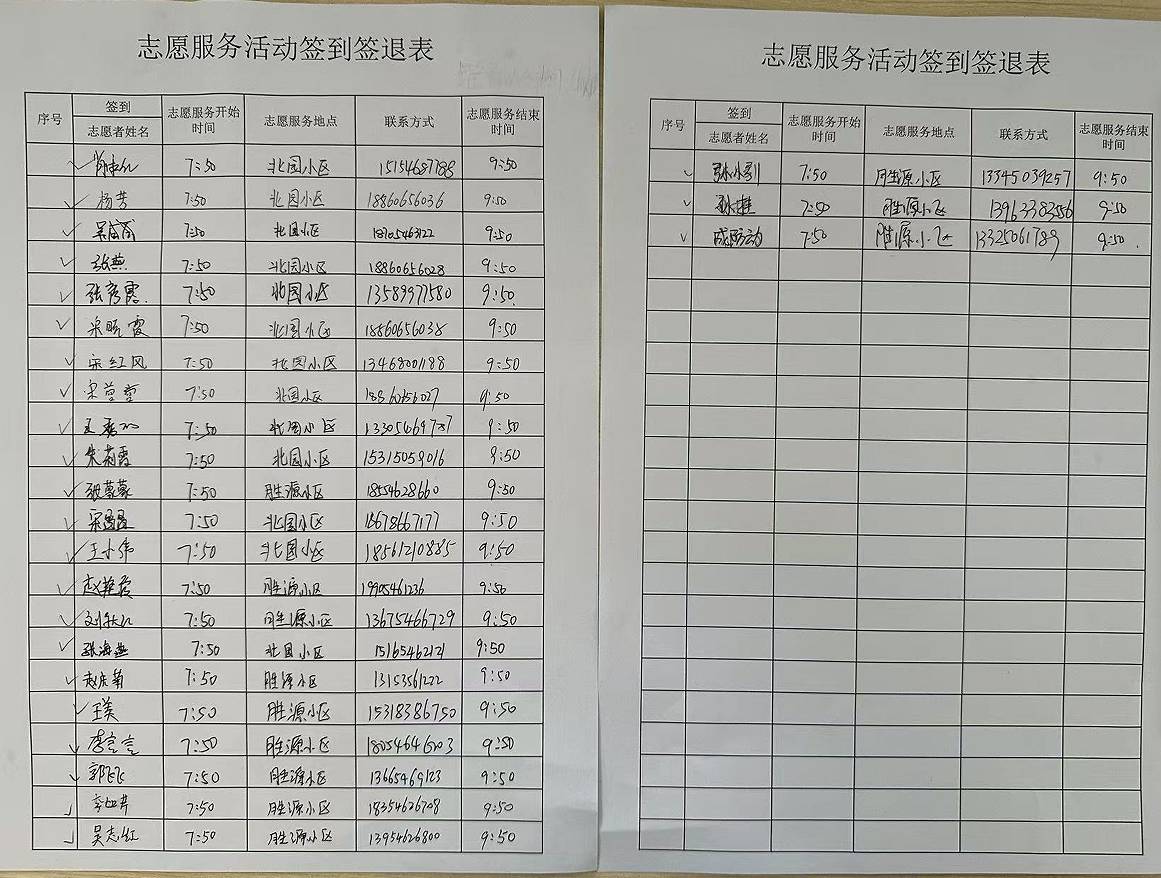 志愿服务活动签到签退表
序号 签到 志愿者姓名 志愿服务开始时间 志愿服务地点 联系方式 志愿服务结束时间
7:50 北国小区 15154687788 9:50
杨芳 7:50 北国小区 18860656036 9:50
7:50 北国小区 18905463122 9:50
张燕 7:50 北国小区 18860656028 9:50
张彦霞 7:50 北国小区 13589977580 9:50
宋晓霞 7:50 北国小区 18860656038 9:50
宋红风 7:50 北国小区 13468001188 9:50
宋莹莹 7:50 北国小区 18860656027 9:50
7:50 北国小区 13305469787 9:50
朱莉霞 7:50 北国小区 15315059016 9:50
张蒙蒙 7:50 胜源小区 18554628660 9:50
宋磊磊 7:50 北国小区 18678667177 9:50
王小伟 7:50 北国小区 18561210885 9:50
赵艳霞 7:50 胜源小区 19905461236 9:50
刘秋红 7:50 胜源小区 13675466729 9:50
张海燕 7:50 北国小区 15165462121 9:50
赵庆菊 7:50 胜源小区 13153561222 9:50
王美 7:50 胜源小区 15318386750 9:50
李言言 7:50 胜源小区 18054646203 9:50
郭飞飞 7:50 胜源小区 13665469123 9:50
7:50 胜源小区 18354626708 9:50
吴志红 7:50 胜源小区 13954626800 9:50
志愿服务活动签到签退表
序号 签到 志愿者姓名 志愿服务开始时间 志愿服务地点 联系方式 志愿服务结束时间
7:50 胜源小区 13345039257 9:50
7:50 胜源小区 13963383556 9:50
7:50 胜源小区 13325061789 9:50